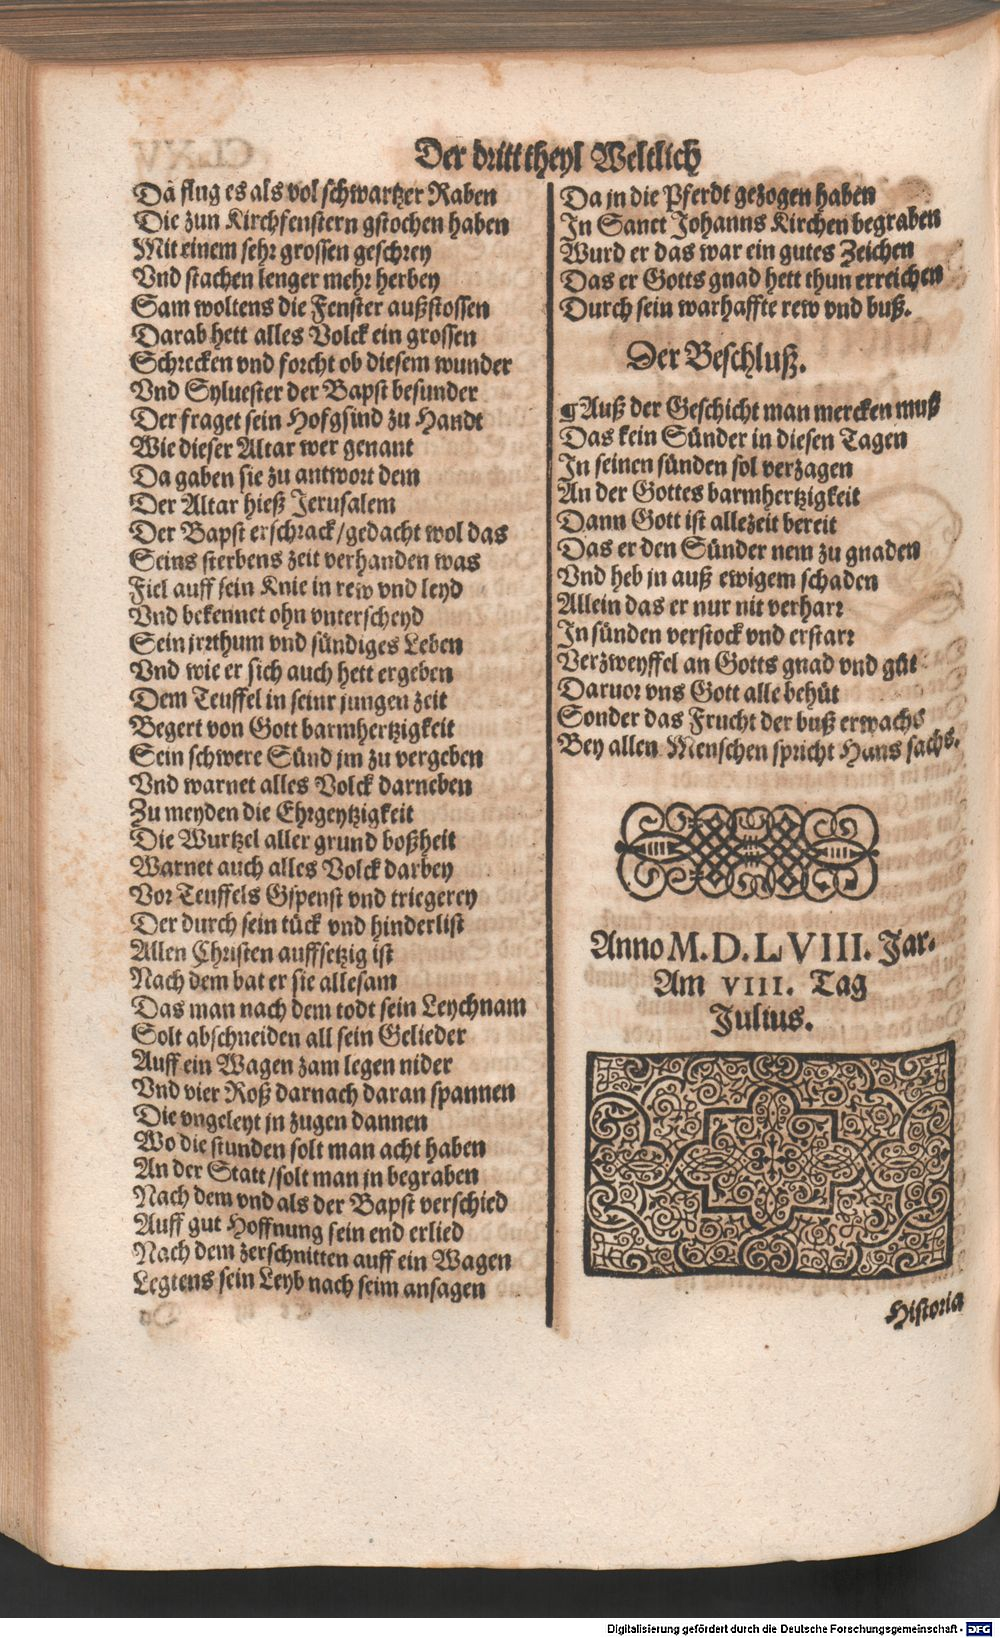 Der dritt theyl Weltlich
Da flug es als vol schwartzer Raben
Die zun Kirchfenstern gstochen haben
Mit einem sehr grossen geschrey
Vnd stachen lenger mehr herbey
Sam woltens die Fenster außstossen
Darab hett alles Volck ein grossen
Schrecken vnd forcht ob diesem wunder
Vnd Syluester der Bapst besunder
Der fraget sein Hofgsind zu Handt
Wie dieser Altar wer genant
Da gaben sie zu antwort dem
Der Altar hieß Jerusalem
Der Bapst erschrack/gedacht wol das
Seins sterbens zeit verhanden was
Fiel auff sein Knie in rew vnd leyd
Vnd bekennet ohn vnterscheyd
Sein jrrthum vnd sündiges Leben
Vnd wie er sich auch hett ergeben
Dem Teuffel in seinr jungen zeit
Begert von Gott barmhertzigkeit
Sein schwere Sünd jm zu vergeben
Vnd warnet alles Volck darneben
Zu meyden die Ehrgeytzigkeit
Die Wurtzel aller grund boßheit
Warnet auch alles Volck darbey
Vor Teuffels Gspenst vnd triegerey
Der durch sein tück vnd hinderlist
Allen Christen auffsetzig ist
Nach dem bat er sie allesam
Das man nach dem todt sein Leychnam
Solt abschneiden all sein Gelieder
Auff ein Wagen zam legen nider
Vnd vier Roß darnach daran spannen
Die vngeleyt jn zugen dannen
Wo die stunden solt man acht haben
An der Statt/solt man jn begraben
Nach dem vnd als der Bapst verschied
Auff gut Hoffnung sein end erlied
Nach dem zerschnitten auff ein Wagen
Legtens sein Leyb nach seim ansagen
Da jn die Pferdt gezogen haben
In Sanct Johanns Kirchen begraben
Wurd er das war ein gutes Zeichen
Das er Gotts gnad hett thun erreichen
Durch sein warhaffte rew vnd buß.
Der Beschluß.
Auß der Geschicht man mercken muß
Das kein Sünder in diesen Tagen
In seinen sünden sol verzagen
An der Gottes barmhertzigkeit
Dann Gott ist allezeit bereit
Das er den Sünder nem zu gnaden
Vnd heb jn auß ewigem schaden
Allein das er nur nit verharr
In sünden verstock vnd erstarr
Verzweyffel an Gotts gnad vnd güt
Daruor vns Gott alle behüt
Sonder das Frucht der buß erwachs
Bey allen Menschen spricht Hans sachs.
Anno M. D. LVIII. Jar.
Am VIII. Tag
Julius.
Historia
Digitalisierung gefördert durch die Deutsche Forschungsgemeinschaft - DFG